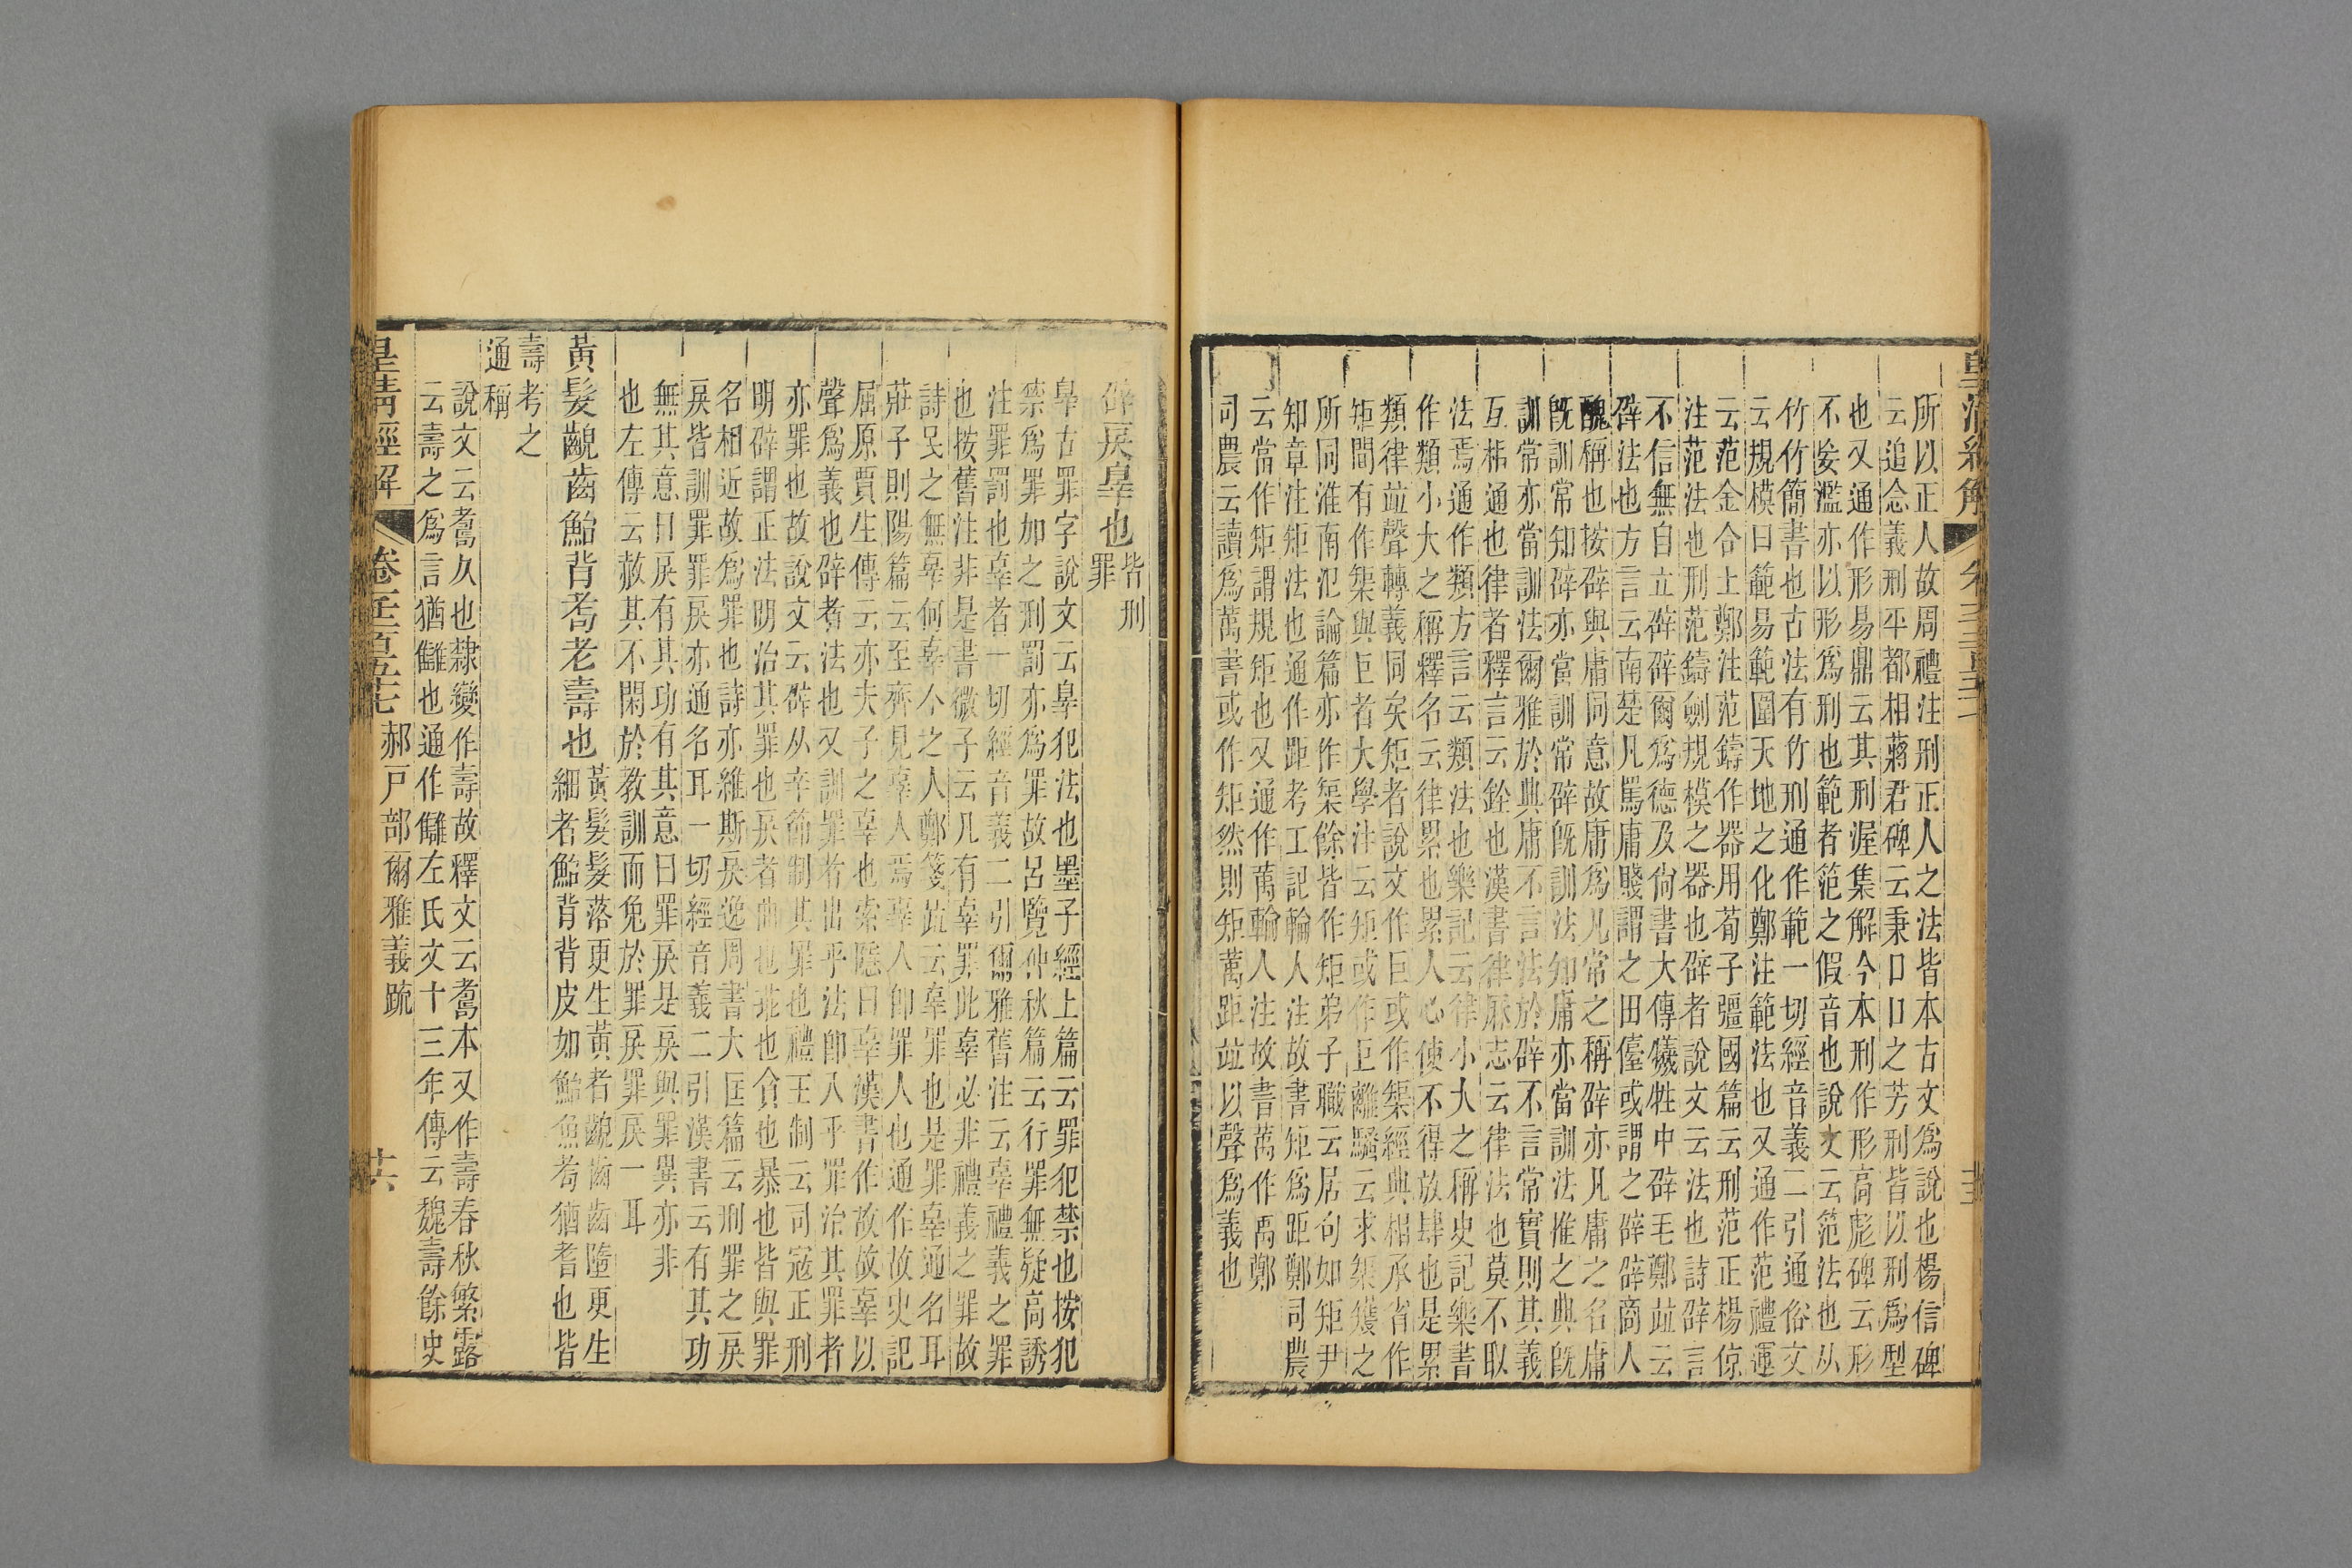 所以正人故周禮注刑正人之法皆本古文爲說也楊信碑
云追念義刑平都相蔣君碑云秉口口之芳刑皆以刑爲型
也又通作形易鼎云其刑渥集解今本刑作形高彪碑云形
不妄濫亦以形爲刑也範者笵之假音也說文云笵法也从
竹竹簡書也古法有竹刑通作範一切經音義二引通俗文
云規模曰範易範圍天地之化鄭注範法也又通作范禮運
云范金合土鄭注范鑄作器用荀子彊國篇云刑范正楊倞
注范法也刑范鑄劍規模之器也辟者說文云法也詩辟言
不信無自立辟辟爾爲德及尙書大傳犧牲中辟毛鄭竝云
辟法也方言云南楚凡罵庸賤謂之田儓或謂之辟辟商人
醜稱也按辟與庸同意故庸爲凡常之稱辟亦凡庸之名庸
旣訓常知辟亦當訓常辟旣訓法知庸亦當訓法推之典旣
訓常亦當訓法爾雅於典庸不言法於辟不言常實則其義
互相通也律者釋言云銓也漢書律厤志云律法也莫不取
法焉通作類方言云類法也樂記云律小大之稱史記樂書
作類小大之稱釋名云律累也累人心使不得放肆也是累
類律竝聲轉義同矣矩者說文作巨或作榘經典相承省作
矩間有作榘與巨者大學注云矩或作巨離騷云求榘矱之
所同淮南氾論篇亦作榘餘皆作矩弟子職云居句如矩尹
知章注矩法也通作距考工記輪人注故書矩爲距鄭司農
云當作矩謂規矩也又通作萭輪人注故書萭作禹鄭
司農云讀爲萬書或作矩然則矩萭距竝以聲爲義也
皇清經解
辟戾辠也皆刑
罪
辠古罪字說文云辠犯法也墨子經上篇云罪犯禁也按犯
禁爲罪加之刑罰亦爲罪故呂覽仲秋篇云行罪無疑高誘
注罪罰也辜者一切經音義二引爾雅舊注云辜禮義之罪
也按舊注非是書微子云凡有辜罪此辜必非禮義之罪故
詩民之無辜何辜今之人鄭箋竝云辜罪也是罪辜通名耳
莊子則陽篇云至齊見辜人焉辜人卽罪人也通作故史記
屈原賈生傳云亦夫子之辜也索隱曰辜漢書作故故辜以
聲爲義也辟者法也又訓罪者出乎法卽入乎罪治其罪者
亦罪也故說文云辟从辛節制其罪也禮王制云司寇正刑
明辟謂正法明治其罪也戾者曲也乖也貪也暴也皆與罪
名相近故爲罪也詩亦維斯戾逸周書大匡篇云刑罪之戾
戾皆訓罪罪戾亦通名耳一切經音義二引漢書云有其功
無其意曰戾有其功有其意曰罪戾是戾與罪異亦非
也左傳云敖其不閑於教訓而免於罪戾罪戾一耳
黃髮齯齒鮐背耇老壽也黃髮髮落更生黃者齯齒齒墮更生
細者鮐背背皮如鮐魚耇猶耆也皆
壽考之
通稱
說文云耈久也隸變作壽故釋文云耈本又作壽春秋繁露
云壽之爲言猶讎也通作讎左氏文十三年傳云魏壽餘史
皇清經解
卷千二百五十七
郝戶部爾雅義疏
十六